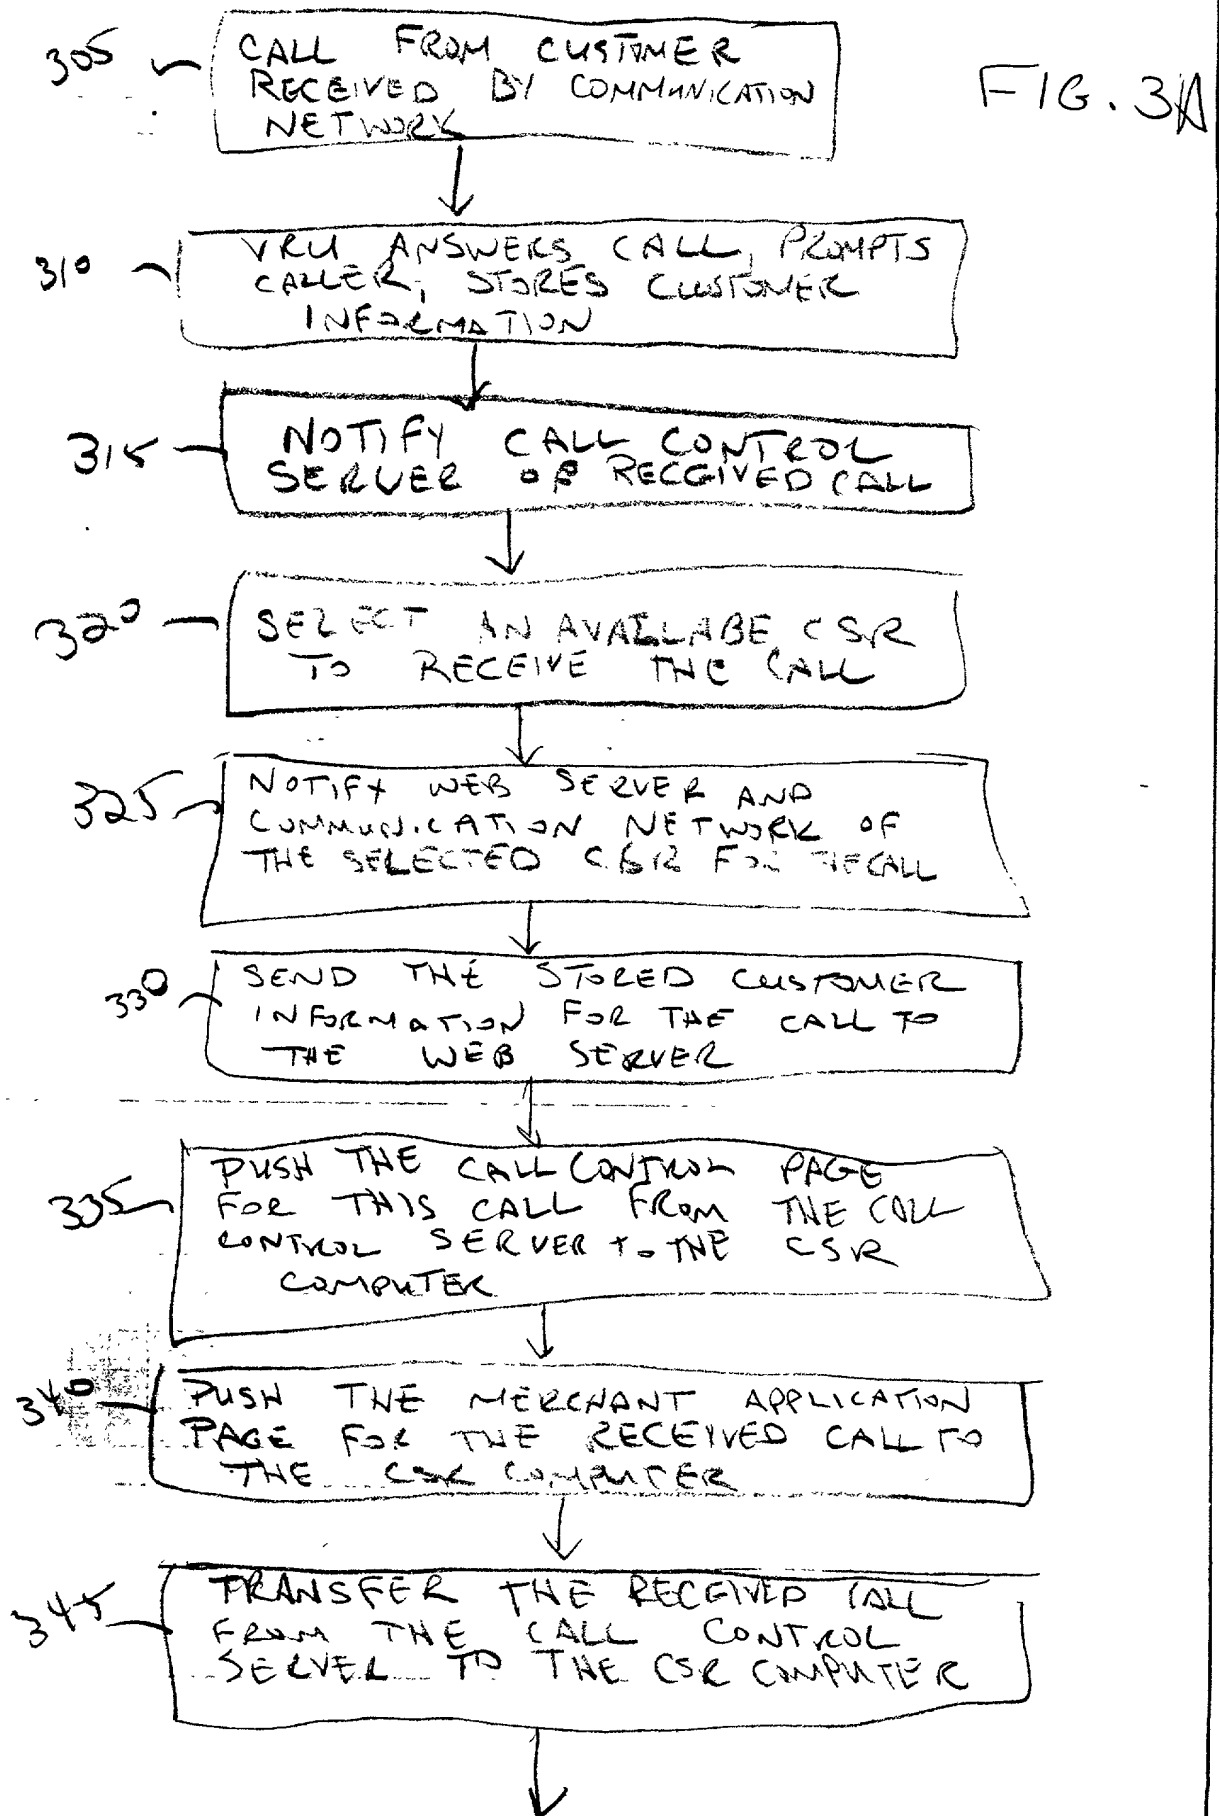 FIG. 3A
305
CALL FROM CUSTOMER
RECEIVED BY COMMUNICATION
NETWORK
310
VRU ANSWERS CALL, PROMPTS
CALLER, STORES CUSTOMER
INFORMATION
315
NOTIFY CALL CONTROL
SERVER OF RECEIVED CALL
320
SELECT AN AVAILABE CSR
TO RECEIVE THE CALL
325
NOTIFY WEB SERVER AND
COMMUNICATION NETWORK OF
THE SELECTED CSR FOR THE CALL
330
SEND THE STORED CUSTOMER
INFORMATION FOR THE CALL TO
THE WEB SERVER
335
PUSH THE CALL CONTROL PAGE
FOR THIS CALL FROM THE CALL
CONTROL SERVER TO THE CSR
COMPUTER
340
PUSH THE MERCHANT APPLICATION
PAGE FOR THE RECEIVED CALL TO
THE CSR COMPUTER
345
TRANSFER THE RECEIVED CALL
FROM THE CALL CONTROL
SERVER TO THE CSR COMPUTER